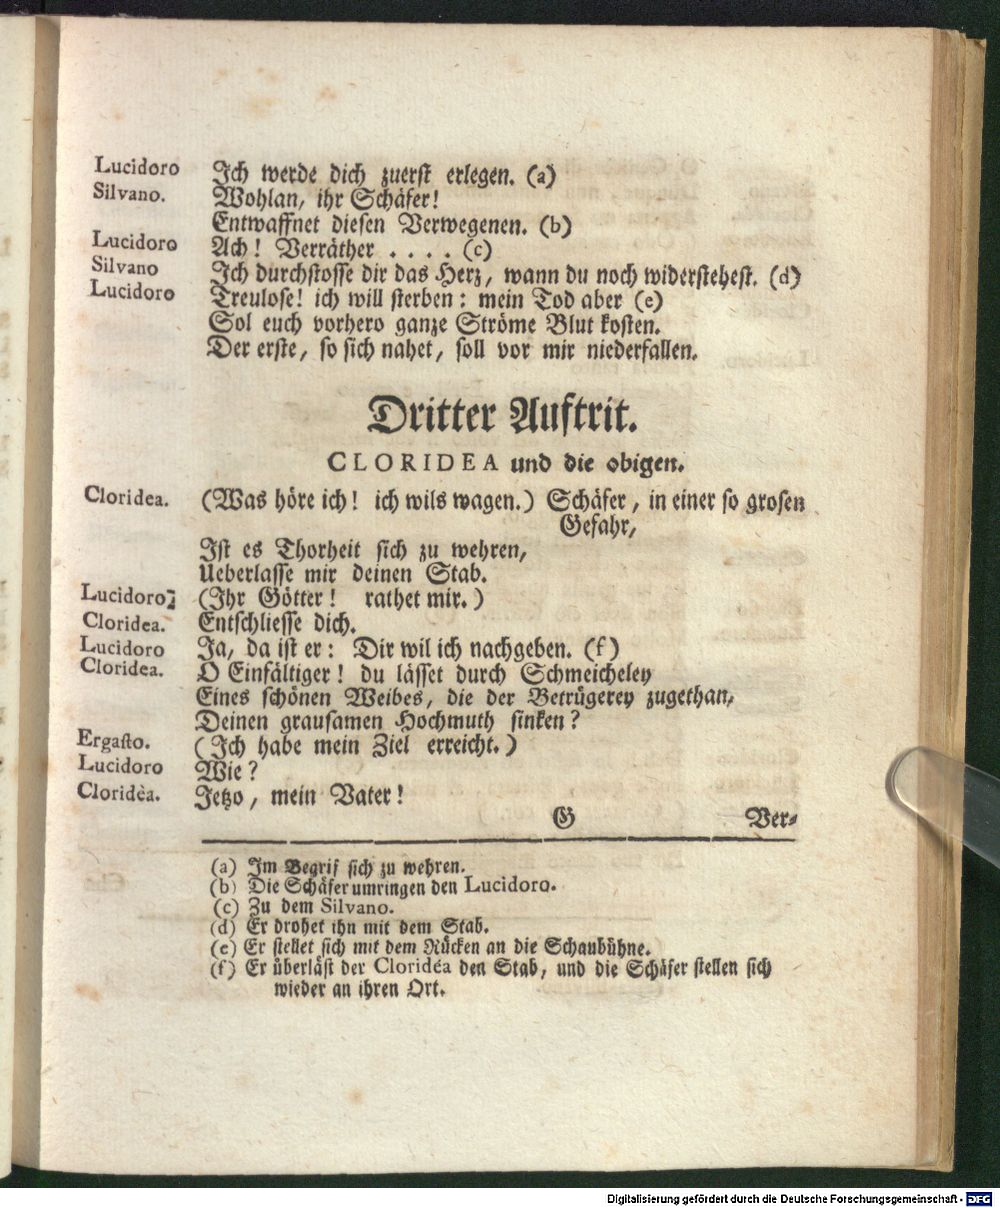 Lucidoro Ich werde dich zuerst erlegen. (a)
Silvano. Wohlan, ihr Schäfer!
Entwaffnet diesen Verwegenen. (b)
Lucidoro Ach! Verräther . . . . (c)
Silvano Ich durchstosse dir das Herz, wann du noch widerstehest. (d)
Lucidoro Treulose! ich will sterben: mein Tod aber (e)
Sol euch vorhero ganze Ströme Blut kosten.
Der erste, so sich nahet, soll vor mir niederfallen.
Dritter Auftrit.
CLORIDEA und die obigen.
Cloridea. (Was höre ich! ich wils wagen.) Schäfer, in einer so grosen
Gefahr,
Ist es Thorheit sich zu wehren,
Ueberlasse mir deinen Stab.
Lucidoro (Ihr Götter! rathet mir.)
Cloridea. Entschliesse dich.
Lucidoro Ja, da ist er: Dir wil ich nachgeben. (f)
Cloridea. O Einfältiger! du lässet durch Schmeicheley
Eines schönen Weibes, die der Betrügerey zugethan,
Deinen grausamen Hochmuth sinken?
Ergasto. (Ich habe mein Ziel erreicht.)
Lucidoro Wie?
Cloridèa. Jetzo, mein Vater!
G Ver-
(a) Im Begrif sich zu wehren.
(b) Die Schäfer umringen den Lucidoro.
(c) Zu dem Silvano.
(d) Er drohet ihn mit dem Stab.
(e) Er stellet sich mit dem Rücken an die Schaubühne.
(f) Er überläst der Cloridéa den Stab, und die Schäfer stellen sich
wieder an ihren Ort.
Digitalisierung gefördert durch die Deutsche Forschungsgemeinschaft - DFG